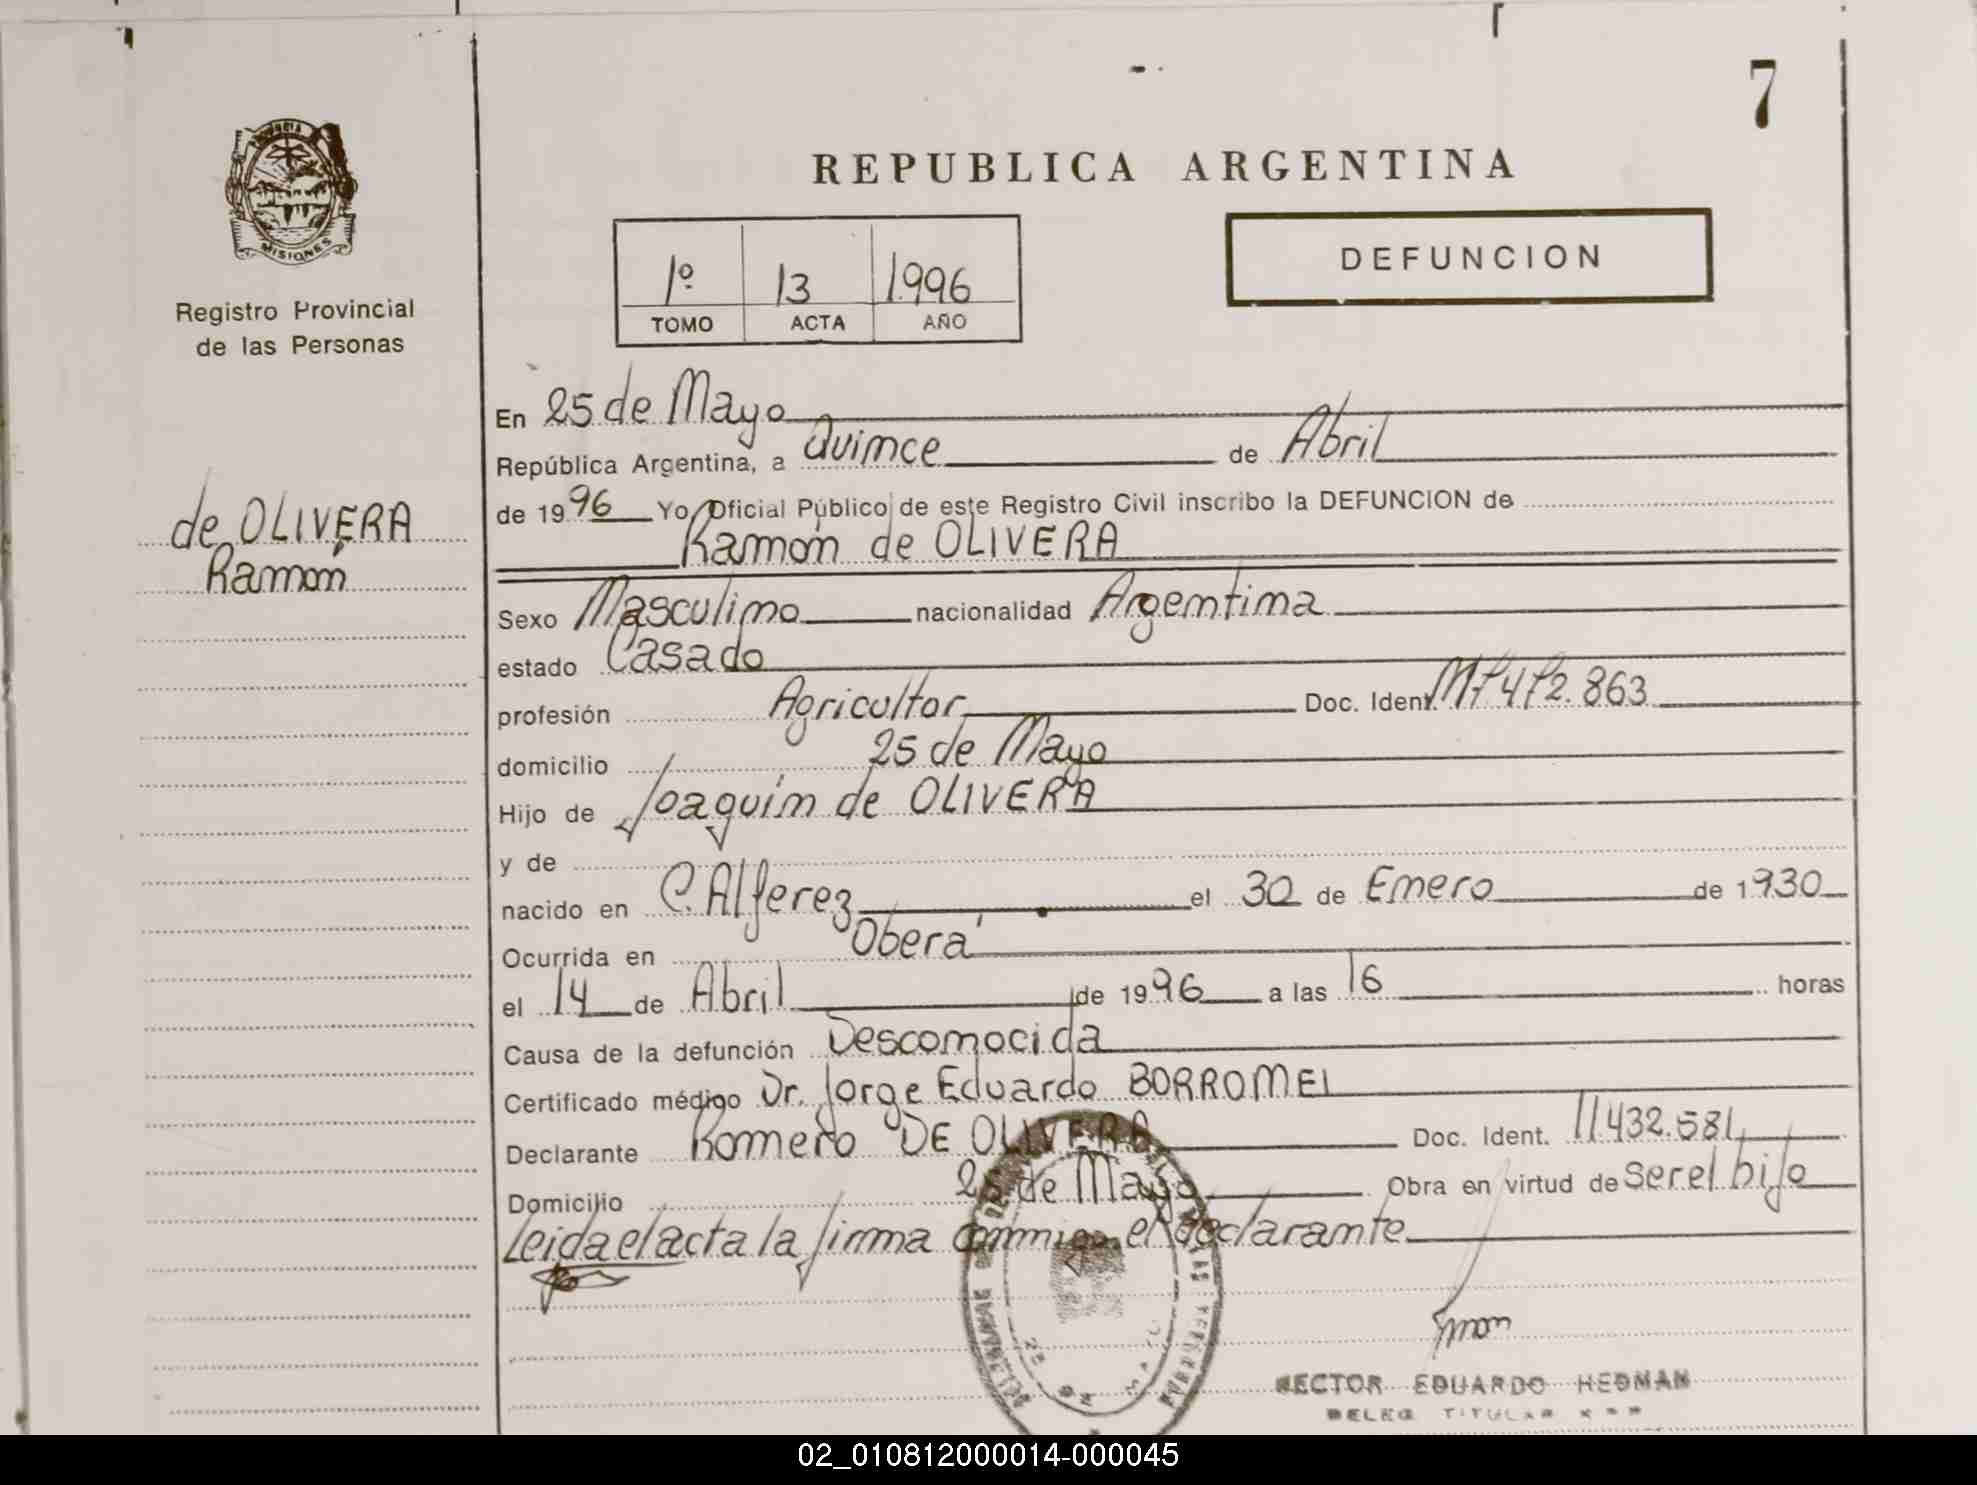 7
REPUBLICA ARGENTINA
PROVINCIA
MISIONES
Registro Provincial
de las Personas
1º 13 1.996
TOMO ACTA AÑO
DEFUNCION
de OLIVERA
Ramón
En 25 de Mayo
República Argentina, a Quince de Abril
de 1996 Yo Oficial Público de este Registro Civil inscribo la DEFUNCION de
Ramón de OLIVERA
Sexo Masculino nacionalidad Argentina
estado Casado
profesión Agricultor Doc. Ident. M7472.863
domicilio 25 de Mayo
Hijo de Joaquín de OLIVERA
y de
nacido en C. Alferez el 30 de Enero de 1930
Ocurrida en Oberá
el 14 de Abril de 1996 a las 16 horas
Causa de la defunción Desconocida
Certificado médico Dr. Jorge Eduardo BORROMEI
Declarante Romero DE OLIVERA Doc. Ident. 11.432.581
Domicilio 25 de Mayo Obra en virtud de Ser el hijo
Leida el acta la firma conmigo el declarante
HECTOR EDUARDO HEDMAN
DELEG TITULAR
02_010812000014-000045